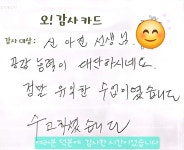 오! 감사 카드
감사 대상: 신아연 선생님
공감 능력이 대단하시네요.
정말 유익한 수업이였습니다
수고하셨습니다
여러분 덕분에 감사한 시간이었습니다